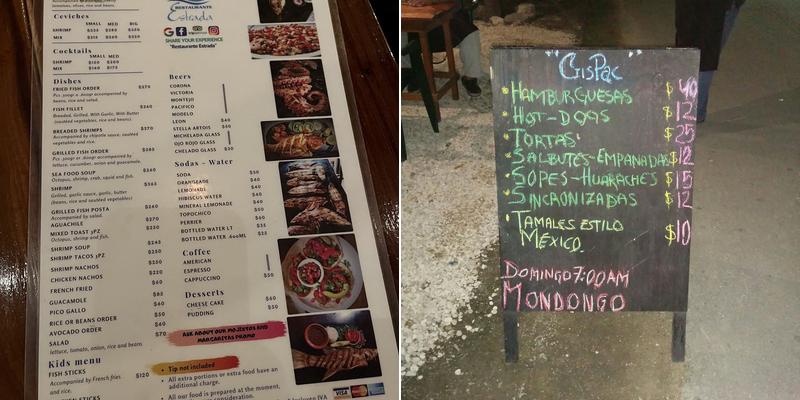 Accompanied by
tomatoes, olives, rice.
Ceviches
SMALL MED BIG
SHRIMP
MIX
Cocktails
SMALL MED
SHRIMP
MIX $140 $175
Dishes
FRIED FISH ORDER $270
beans, rice and salad.
FISH FILLET $240
Breaded, Grilled, With Garlic, With Butter
(sautéed vegetables, rice and beans).
BREADED SHRIMPS $270
Accompanied by chipotle sauce, sautéed
vegetables and rice.
GRILLED FISH ORDER $280
lettuce, cucumber, onion and guacamole.
SEA FOOD SOUP $260
Octopus, shrimp, crab, squid and fish.
SHRIMP
Grilled, garlic sauce, garlic, butter
(beans, rice and sautéed vegetables)
GRILLED FISH POSTA $260
Accompanied by salad.
AGUACHILE $270
MIXED TOAST 3PZ $230
Octopus, shrimp and fish.
SHRIMP SOUP
SHRIMP TACOS 3PZ $250
SHRIMP NACHOS
CHICKEN NACHOS $220
FRENCH FRIED $60
GUACAMOLE
PICO GALLO $50
RICE OR BEANS ORDER
AVOCADO ORDER
SALAD $70
lettuce, tomato, onion, rice and beans
Kids menu
FISH STICKS $120
Accompanied by French fries
and rice.
RESTAURANTE
Estrada
SHARE YOUR EXPERIENCE
"Restaurante Estrada"
Beers
CORONA
VICTORIA
MONTEJO
PACIFICO
MODELO
LEON $40
STELLA ARTOIS $50
MICHELADA GLASS
OJO ROJO GLASS
CHELADO GLASS $30
Sodas - Water
SODA $40
ORANGEADE
LEMONADE $40
HIBISCUS WATER $40
MINERAL LEMONADE $40
TOPOCHICO $50
PERRIER $60
BOTTLED WATER LT $35
BOTTLED WATER .600ML $25
Coffee
AMERICAN
ESPRESSO
CAPPUCCINO $50
Desserts
CHEESE CAKE $60
PUDDING $50
ASK ABOUT OUR MOJITOS AND
MARGARITAS PROMO
• Tip not included
• All extra portions or extra food have an
additional charge.
• All our food is prepared at the moment,
IVA
VISA
"CrisPac"
• HAMBURGUESAS $40
• HOT-DOGS $12
• TORTAS $25
• SALBUTES-EMPANADAS $12
• SOPES-HUARACHES $15
• SINCRONIZADAS $12
• TAMALES ESTILO
MEXICO. $10
DOMINGO 7:00AM
MONDONGO